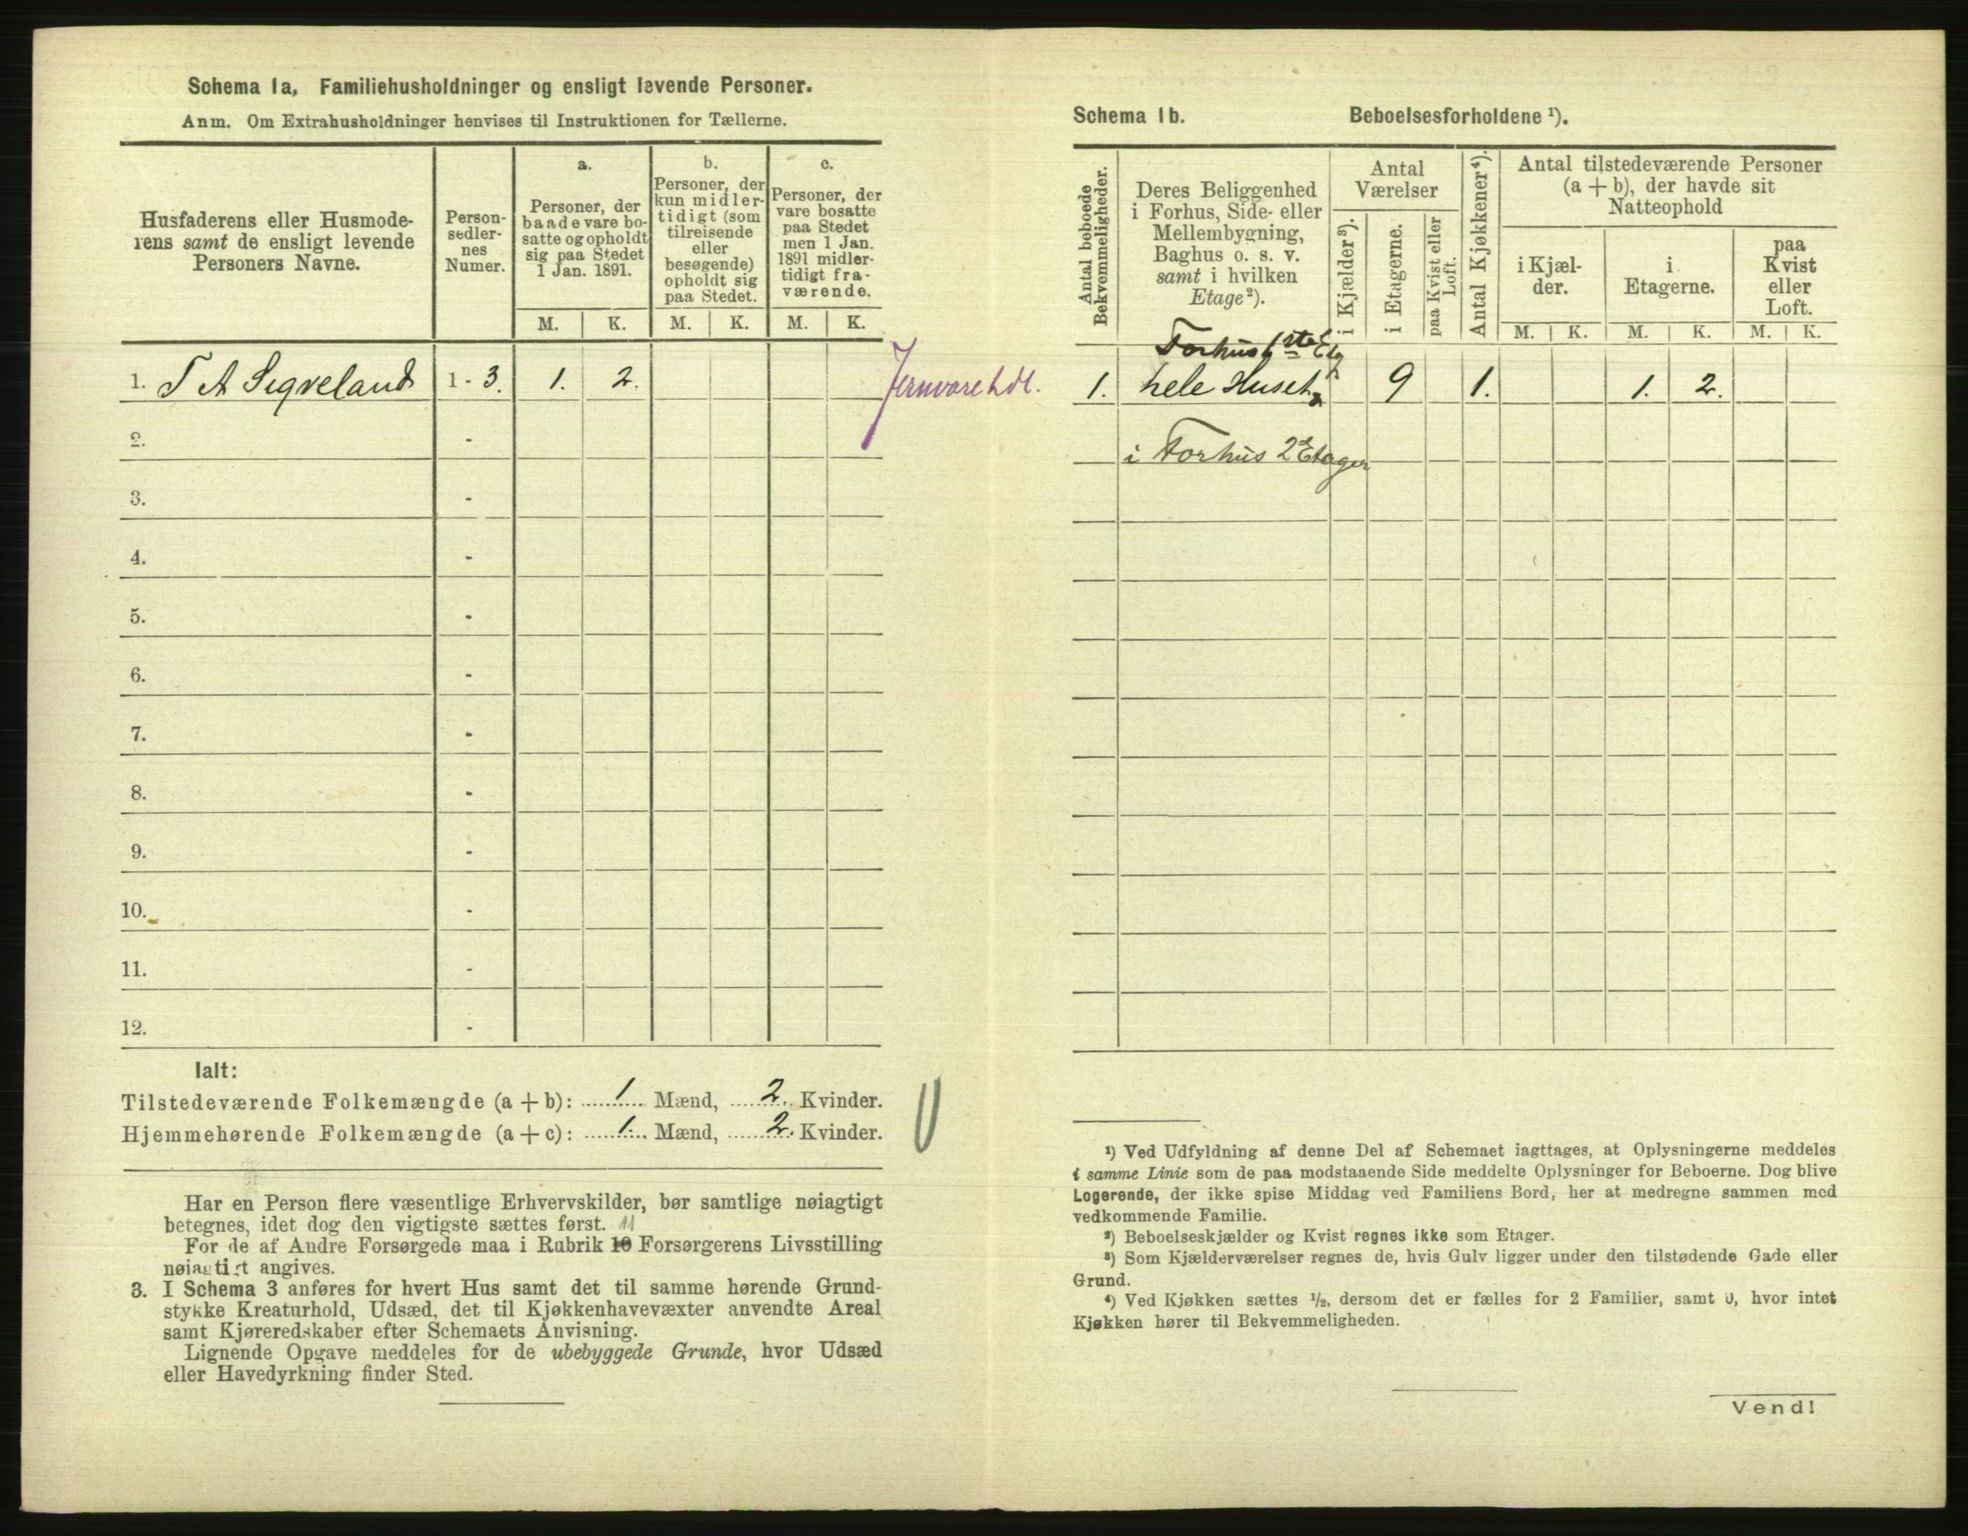 Schema 1a, Familiehusholdninger og ensligt levende Personer.
Anm. Om Extrahusholdninger henvises til Instruktionen for Tællerne.
Husfaderens eller Husmode-
rens samt de ensligt levende
Personers Navne.
Person-
sedler-
nes
Numer.
a.
Personer, der
baade vare bo-
satte og opholdt
sig paa Stedet
1 Jan. 1891.
b.
Personer, der
kun midler-
tidigt (som
tilreisende
eller
besøgende)
opholdt sig
paa Stedet.
c.
Personer, der
vare bosatte
paa Stedet
men 1 Jan.
1891 midler-
tidigt fra-
værende.
M. K. M. K. M. K.
1. T A Sigveland 1 - 3. 1. 2.
Jernvarehdl.
2. -
3. -
4. -
5. -
6. -
7. -
8. -
9. -
10. -
11. -
12. -
Ialt:
Tilstedeværende Folkemængde (a + b): 1 Mænd, 2. Kvinder.
Hjemmehørende Folkemængde (a + c): 1. Mænd, 2. Kvinder.
Har en Person flere væsentlige Erhvervskilder, bør samtlige nøiagtigt
betegnes, idet dog den vigtigste sættes først. 11
For de af Andre Forsørgede maa i Rubrik 10 Forsørgerens Livsstilling
nøiagtigt angives.
3. I Schema 3 anføres for hvert Hus samt det til samme hørende Grund-
stykke Kreaturhold, Udsæd, det til Kjøkkenhavevæxter anvendte Areal
samt Kjøreredskaber efter Schemaets Anvisning.
Lignende Opgave meddeles for de ubebyggede Grunde, hvor Udsæd
eller Havedyrkning finder Sted.
Schema 1b. Beboelsesforholdene ¹).
Antal beboede
Bekvemmeligheder.
Deres Beliggenhed
i Forhus, Side- eller
Mellembygning,
Baghus o. s. v.
samt i hvilken
Etage²).
Antal
Værelser
i Kjælder³).
i Etagerne.
paa Kvist eller
Loft.
Antal Kjøkkener⁴).
Antal tilstedeværende Personer
(a + b), der havde sit
Natteophold
i Kjæl-
der.
i
Etagerne.
paa
Kvist
eller
Loft.
M. K. M. K. M. K.
Forhus 1ste Etg
1. hele Huset 9 1. 1. 2.
i Forhus 2 Etager
¹) Ved Udfyldning af denne Del af Schemaet iagttages, at Oplysningerne meddeles
i samme Linie som de paa modstaaende Side meddelte Oplysninger for Beboerne. Dog blive
Logerende, der ikke spise Middag ved Familiens Bord, her at medregne sammen med
vedkommende Familie.
²) Beboelseskjælder og Kvist regnes ikke som Etager.
³) Som Kjælderværelser regnes de, hvis Gulv ligger under den tilstødende Gade eller
Grund.
⁴) Ved Kjøkken sættes ½, dersom det er fælles for 2 Familier, samt 0, hvor intet
Kjøkken hører til Bekvemmeligheden.
Vend!